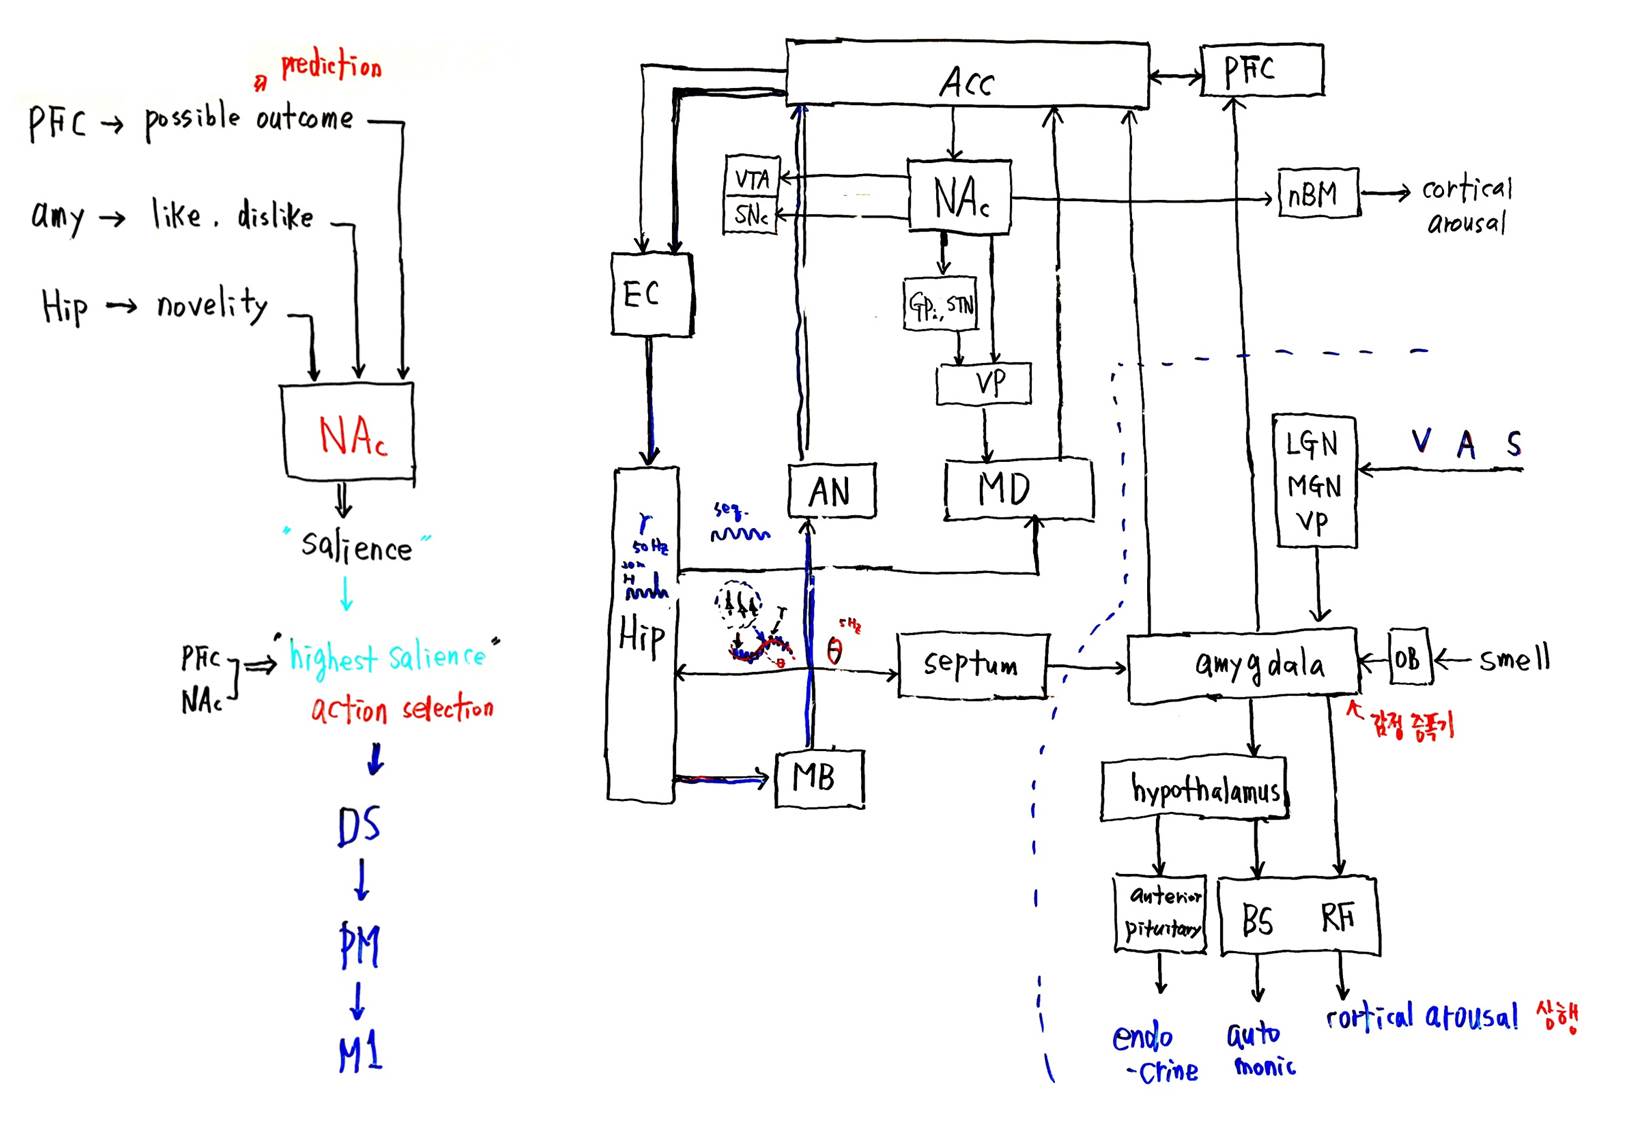 prediction
PFC → possible outcome
amy → like. dislike
Hip → novelity
NAc
"salience"
PFC
NAc
"highest salience"
action selection
DS
PM
M1
ACC
PFC
VTA
SNc
NAc
nBM
cortical
arousal
EC
GPi, STN
VP
AN
MD
LGN
MGN
VP
V A S
seq.
γ
50Hz
Hip
γ
θ
θ
5Hz
septum
amygdala
OB
smell
감정 증폭기
MB
hypothalamus
anterior
pituitary
BS RF
endo
-crine
auto
monic
cortical arousal 상행